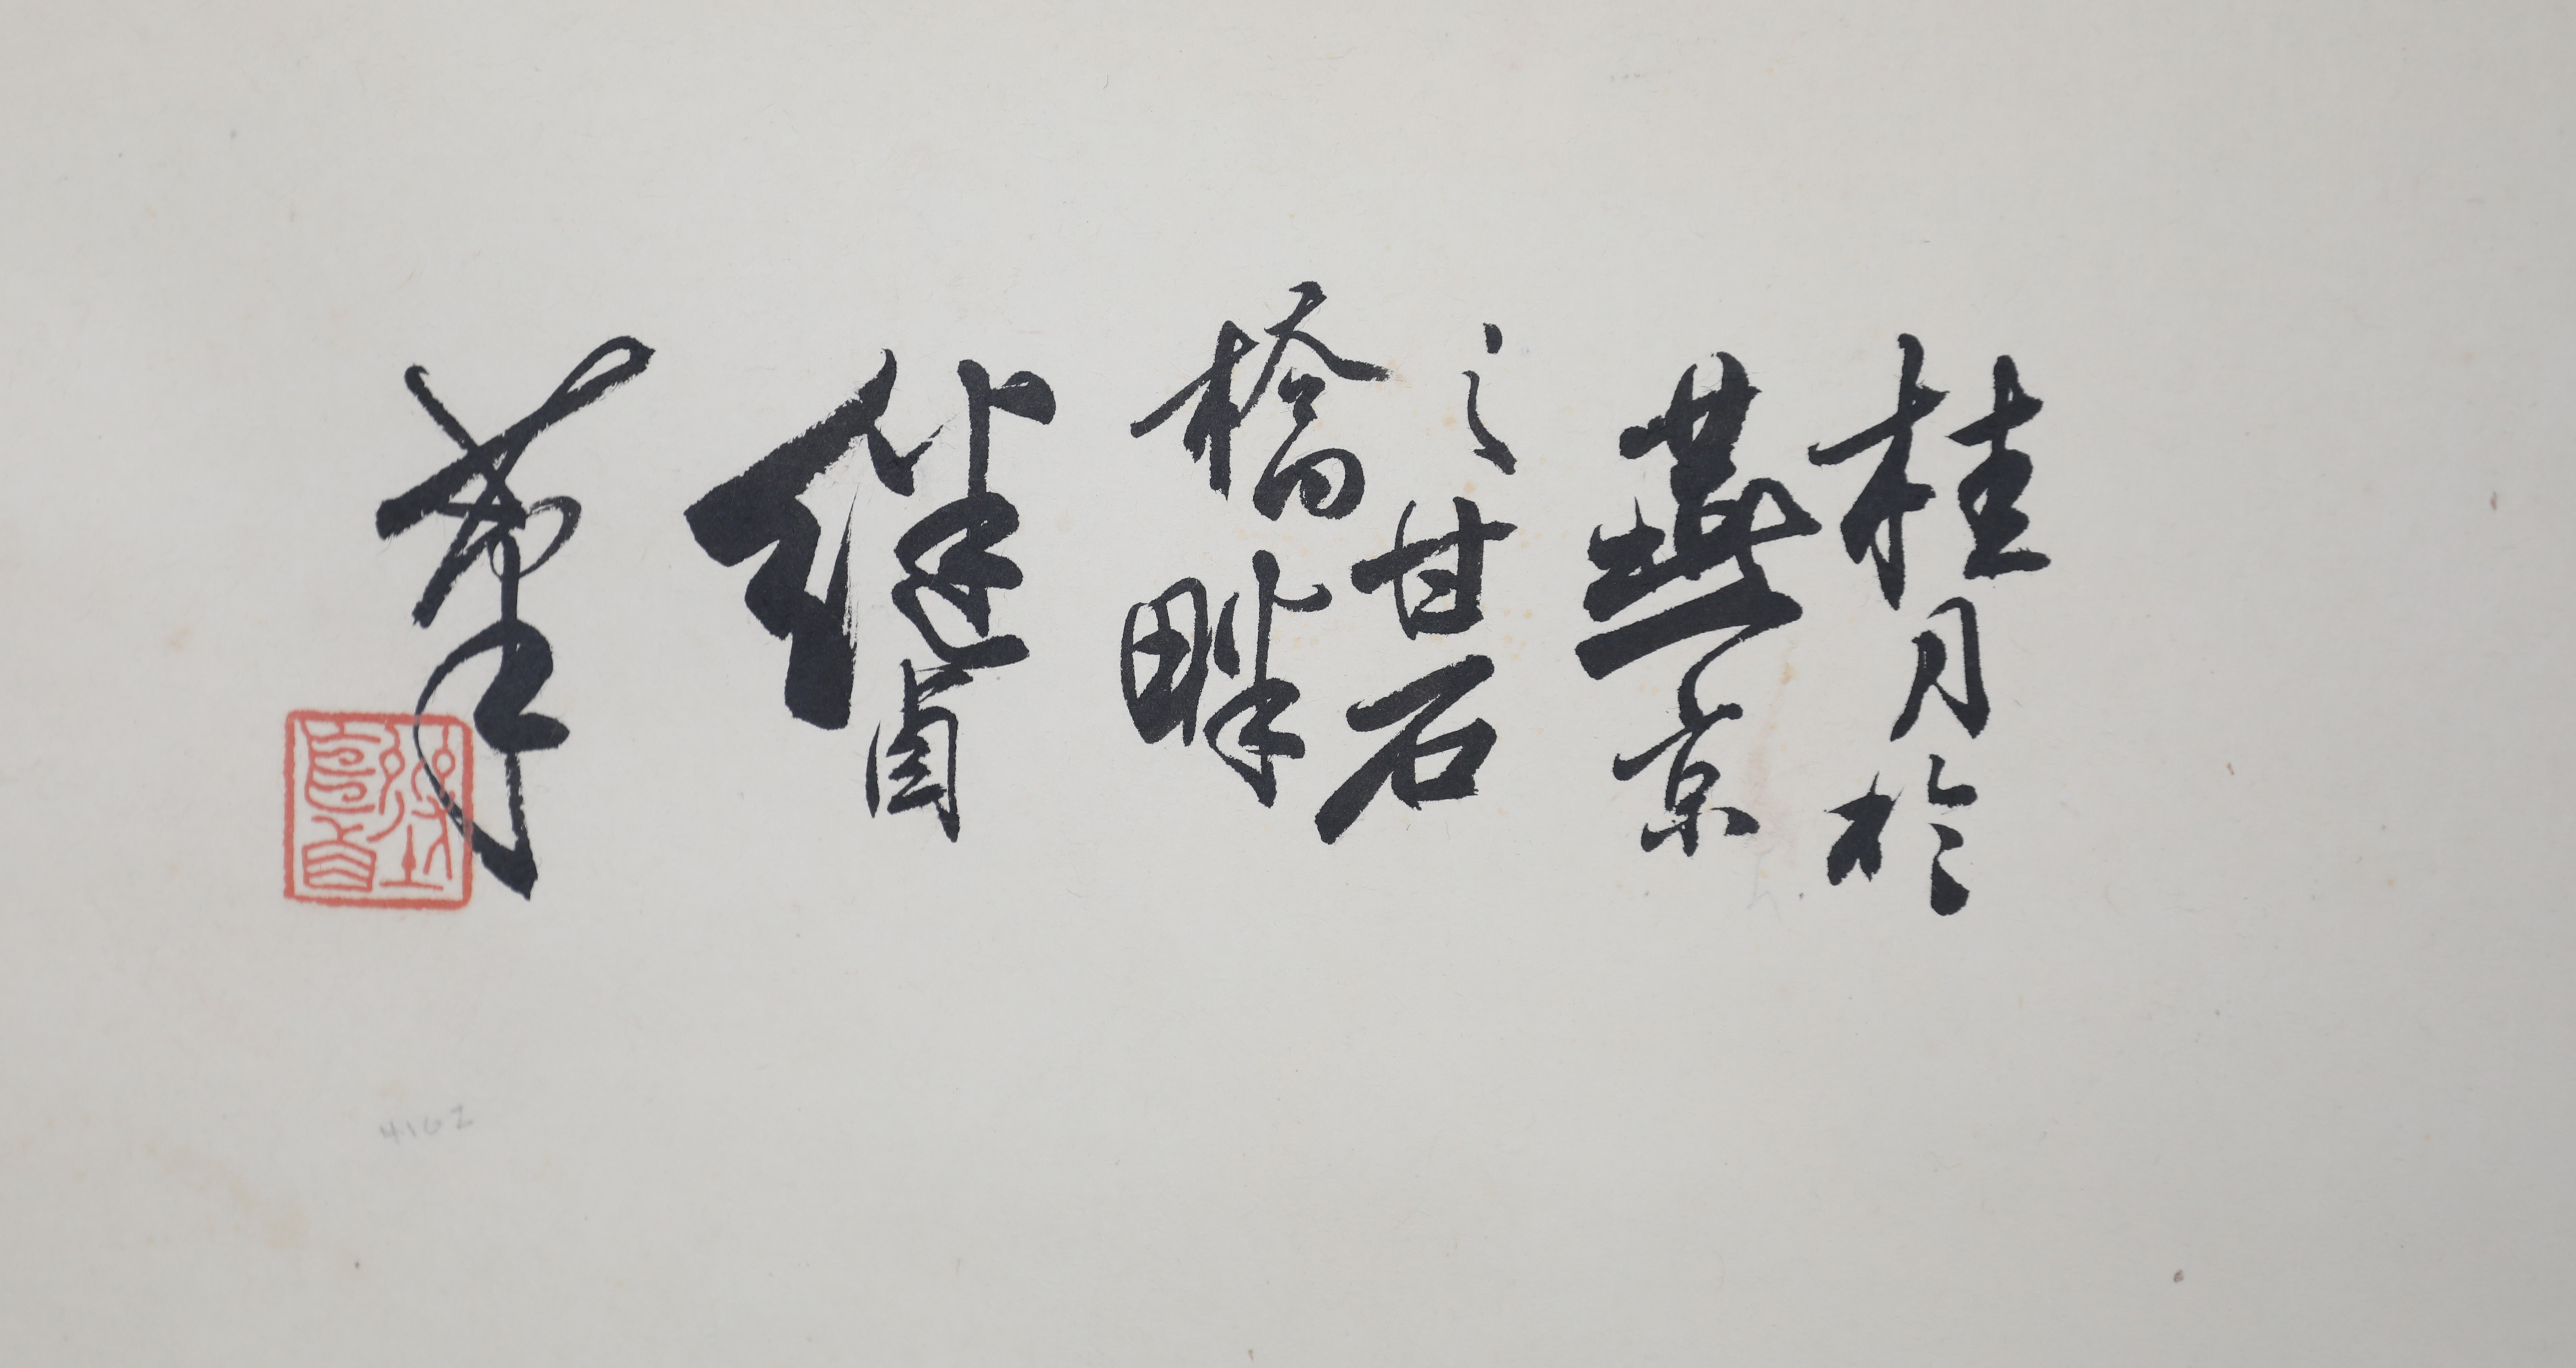 桂月於
燕京
之甘石
橋畔
繼貞
筆
4102